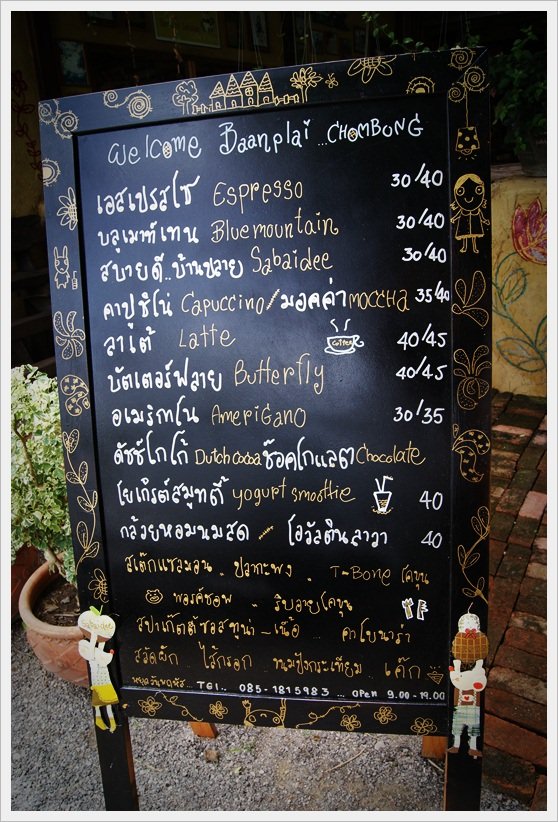 Welcome Baanplai ...CHOMBONG
เอสเปรสโซ่ Espresso 30/40
บลูเมาท์เทน Bluemountain 30/40
สบายดี..บ้านปลาย Sabaidee 30/40
คาปูชิโน่ Capuccino/มอคค่า moccHa 35/40
ลาเต้ Latte Coffee 40/45
บัตเตอร์ฟลาย Butterfly 40/45
อเมริกาโน AmeriGano 30/35
ดัชช์โกโก้ Dutch cocoa ช๊อคโกแลต Chocolate
โยเกิร์ตสมูทตี้ yogurt smoothie 40
กล้วยหอมนมสด โอวัลตินลาวา 40
สเต๊กแซลมอน . ปลากะพง . T-Bone โคขุน
พอร์คชอพ .. ริบอายโคขุน
สปาเก็ตตี้ซอสทูน่า - เนื้อ .. คาโบนาร่า
สลัดผัก .. ไส้กรอก ขนมปังกระเทียม .. เค้ก
หยุดวันพฤหัส . TEl.. 085-1815983 ... OPEN 9.00-19.00
Sabaidee